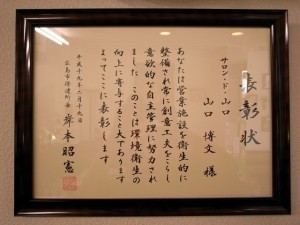 表彰状
サロン・ド・山口
山口 博文 様
あなたは営業施設を衛生的に
整備され常に創意工夫をこらし
意欲的な自主管理に努力され
ました このことは環境衛生の
向上に寄与すること大であります
よってここに表彰します
平成十九年二月十九日
広島市保健所長 岸本昭憲